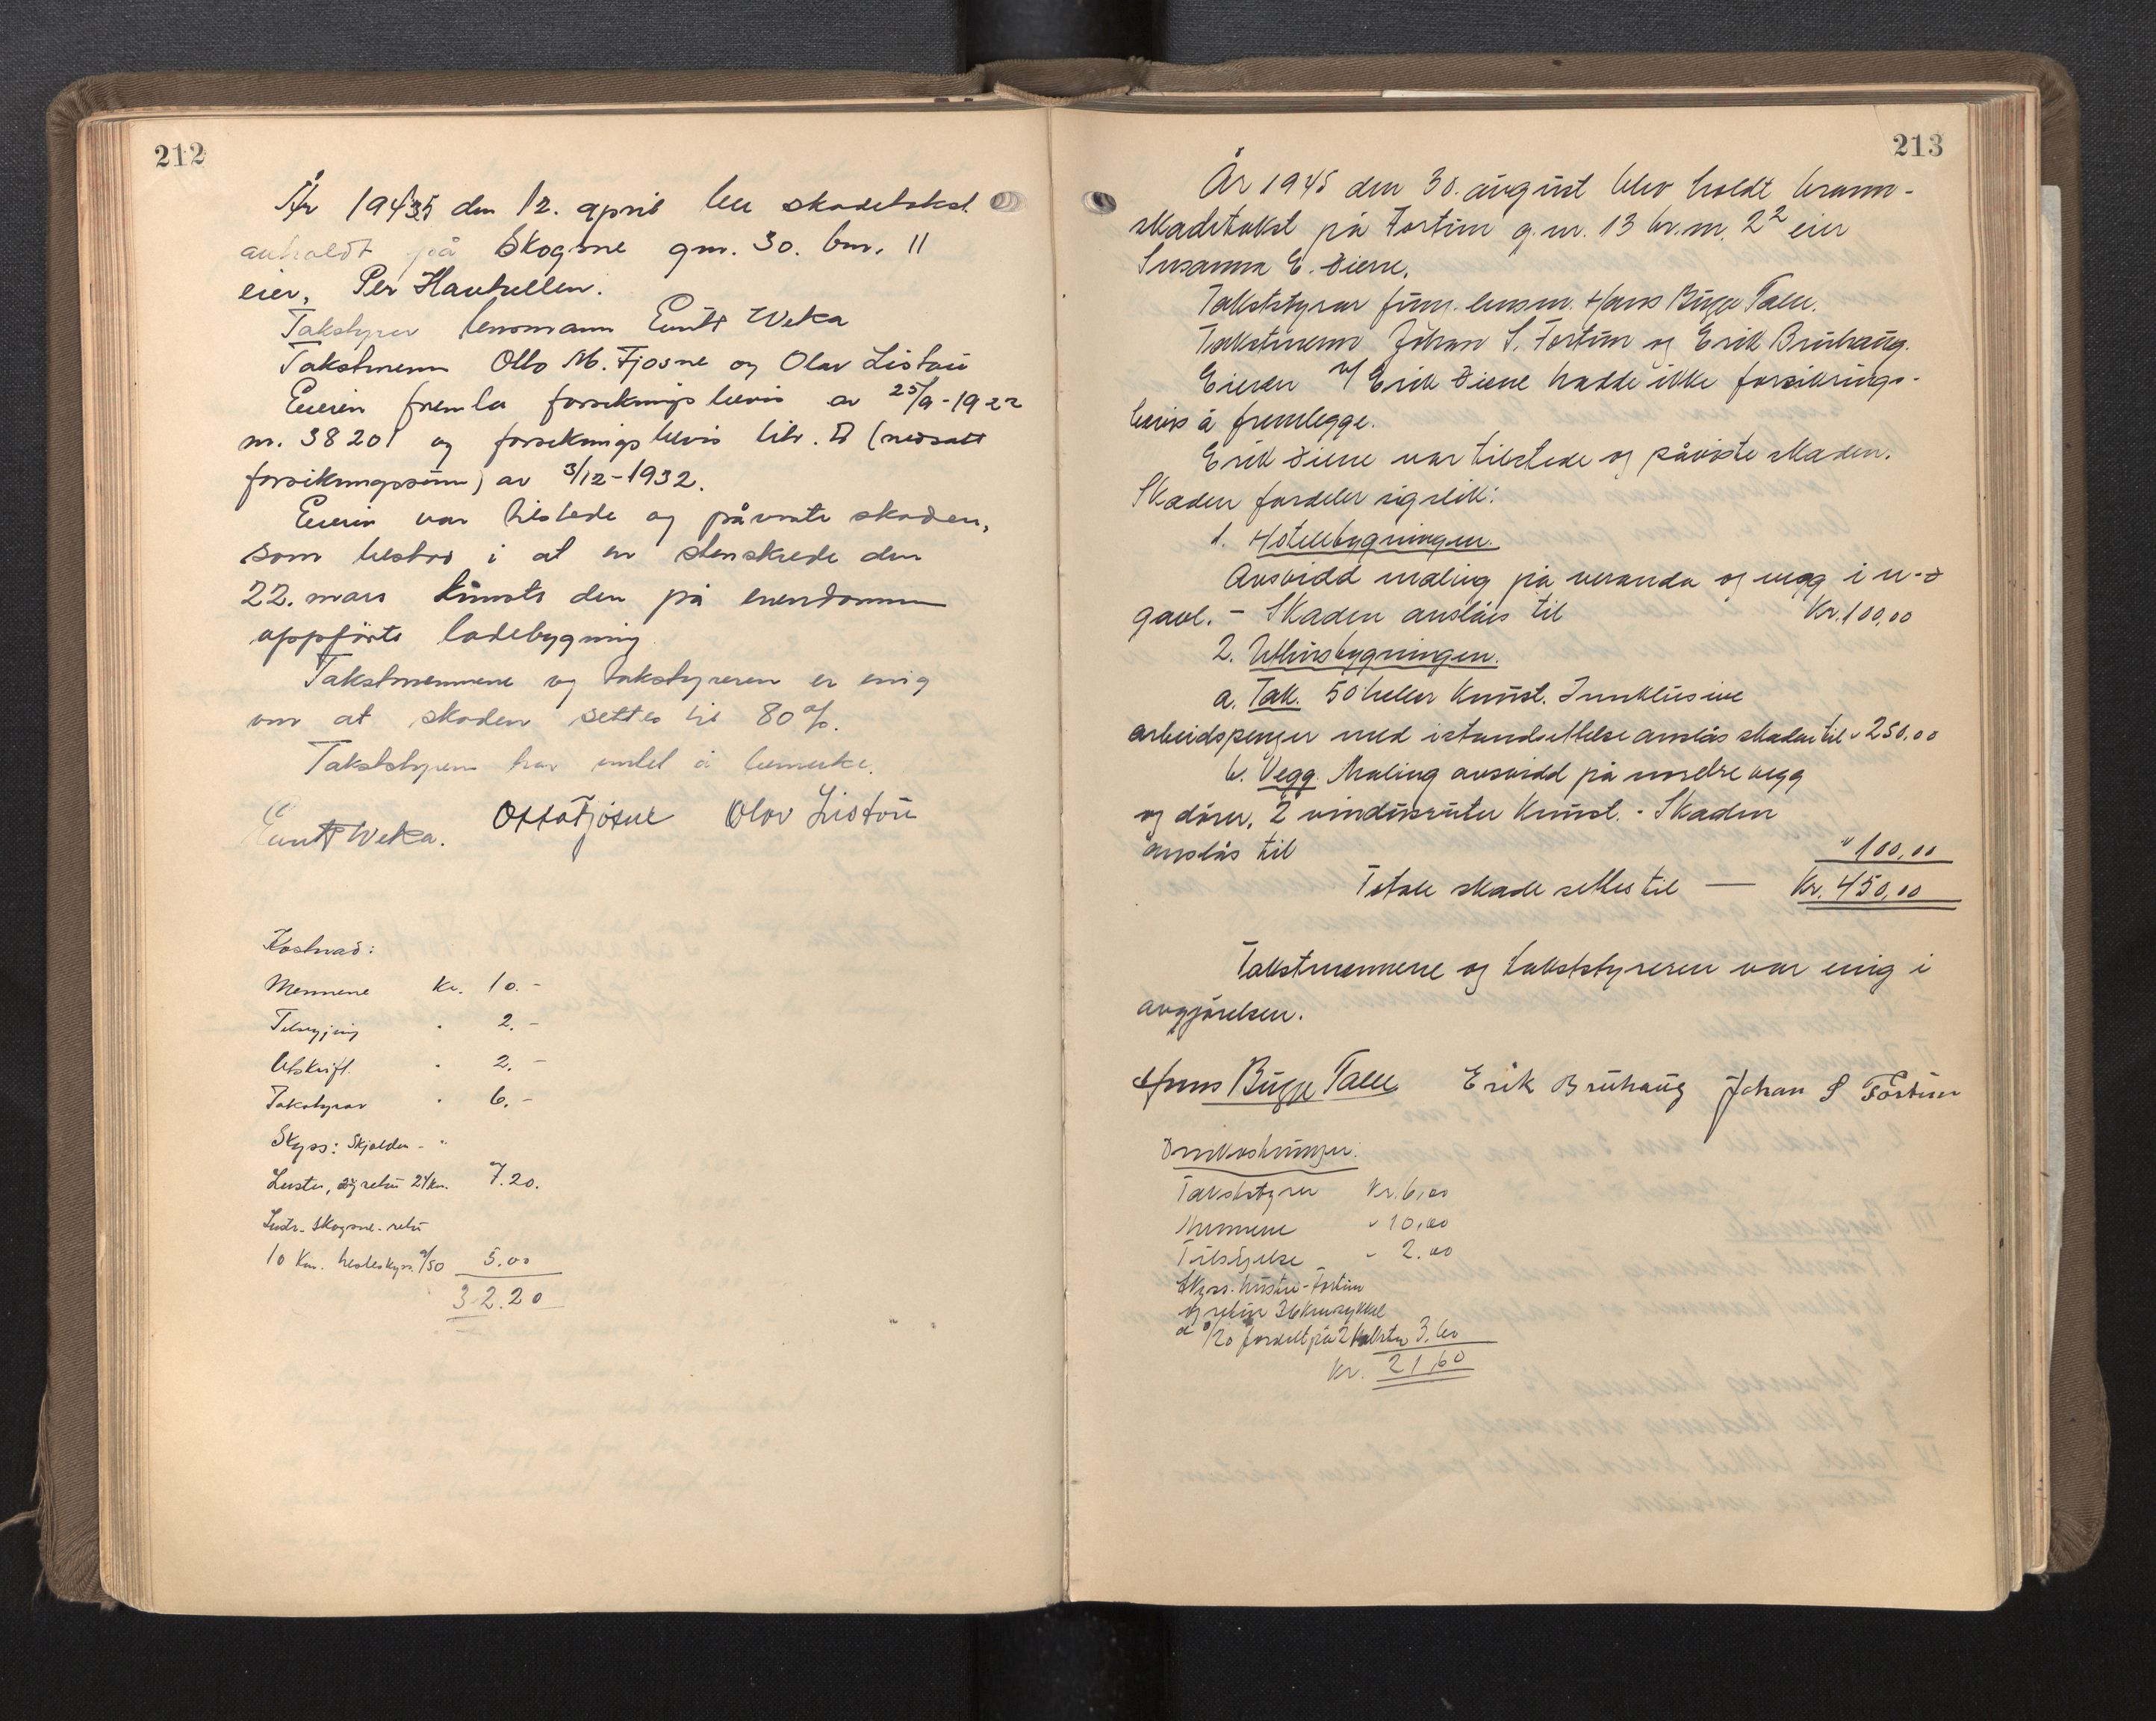 212
År 1945 den 12. april ble skadetakst
avholdt på Skogsne gnr. 30. bnr. 11
eier, Per Hauhellen.
Takstyrer lensmann Eontt Weka
Takstmenn Otto M. Fjøsne og Olav Listøu
Eieren fremla forsikringsbevis av 25/9-1922
nr. 38201 og forsikringsbevis litr. D (nedsatt
forsikringssum) av 3/12-1932.
Eieren var tilstede og påviste skaden,
som bestod i at en stenskrede den
22. mars knuste den på eiendommen
oppførte ladebygning
Takstmennene og takstyreren er enig
om at skaden settes til 80%.
Takststyreren har intet å bemerke.
Weka. Otto Fjøsne Olav Listøu
Kostnad:
Mennene Kr. 10.-
Tilsigjing " 2.-
Utskrift " 2.-
Takstyrar " 6.-
Skyss: Skjolden - "
Luster, og retur 24 km. 7.20.
Lustr.-Skogsne-retu
10 Km. hesteskyss a/50 5.00
32.20
213
År 1945 den 30. august blev holdt brann-
skadetakst på Fortun g.nr. 13 br.nr. 2² eier
Susanna E. Øiene.
Takststyrar fung. lensm. Hans Bugge Talle.
Takstmenn Johan S. Fortun og Erik Bruhaug.
Eieren v/ Erik Øiene hadde ikke forsikrings-
bevis å fremlegge.
Erik Øiene var tilstede og påviste skaden.
Skaden fordeler sig slik:
1. Hotellbygningen.
Avsvidd maling på veranda og vegg i n-ø
gavl. - Skaden anslåes til Kr. 100,00
2. Uthusbygningen.
a. Tak. 50 heller knust. Innklusive
arbeidspenger med istandsettelse anslås skaden til " 250,00
b. Vegg. Maling avsvidd på nordre vegg
og dører. 2 vindusruter knust. - Skaden
anslås til " 100,00
Totale skade settes til — Kr. 450,00
Takstmennene og takststyreren var enig i
avgjørelsen.
Hans Bugge Talle Erik Bruhaug Johan S Fortun
Omkostninger:
Takststyrer Kr. 6,00
Mennene " 10,00
Tilsigelse " 2.00
Skyss. Luster-Fortun
og retur 36 km sykkel
a /20 fordelt på 2 takster 3,60
Kr. 21,60